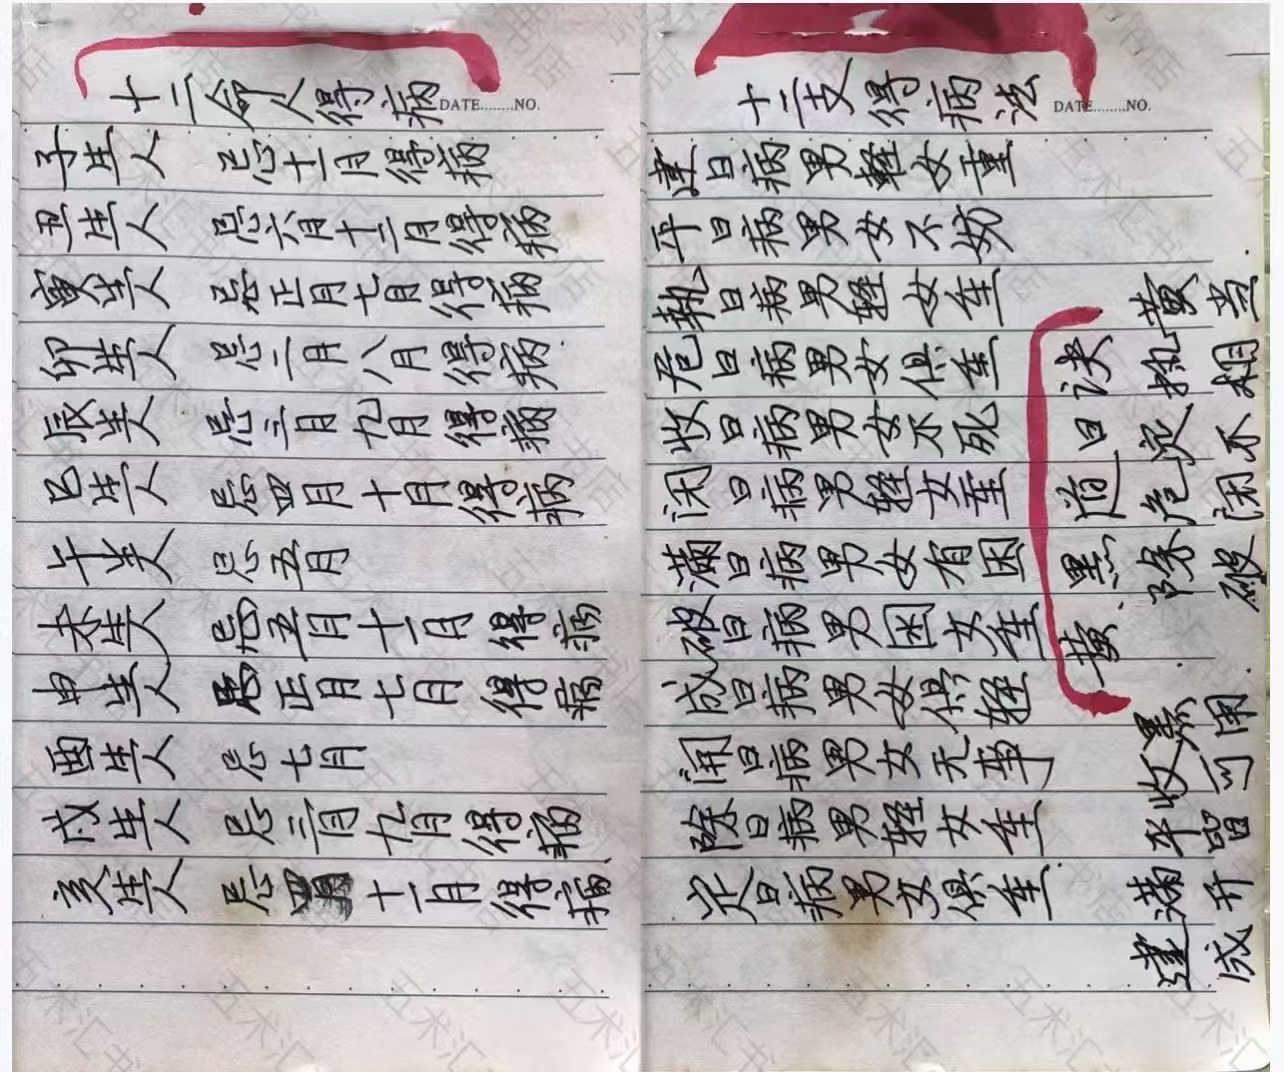 十二命人得病
DATE........NO.
子生人 忌十一月得病
丑生人 忌六月十二月得病
寅生人 忌正月七月得病
卯生人 忌二月八月得病
辰生人 忌三月九月得病
巳生人 忌四月十月得病
午生人 忌五月
未生人 忌五月十一月得病
申生人 忌正月七月得病
酉生人 忌七月
戌生人 忌三月九月得病
亥生人 忌四月十一月得病
十二支得病法
DATE........NO.
建日病男轻女重
平日病男女不妨
执日病男轻女重
危日病男女俱重
收日病男女不死
闭日病男轻女重
满日病男女有困
破日病男困女重
成日病男女俱轻
开日病男女无事
除日病男轻女重
定日病男女俱重
黄黑道日诀
建满平收黑
除危定执黄
成开皆可用
破闭不相当
五术汇书店